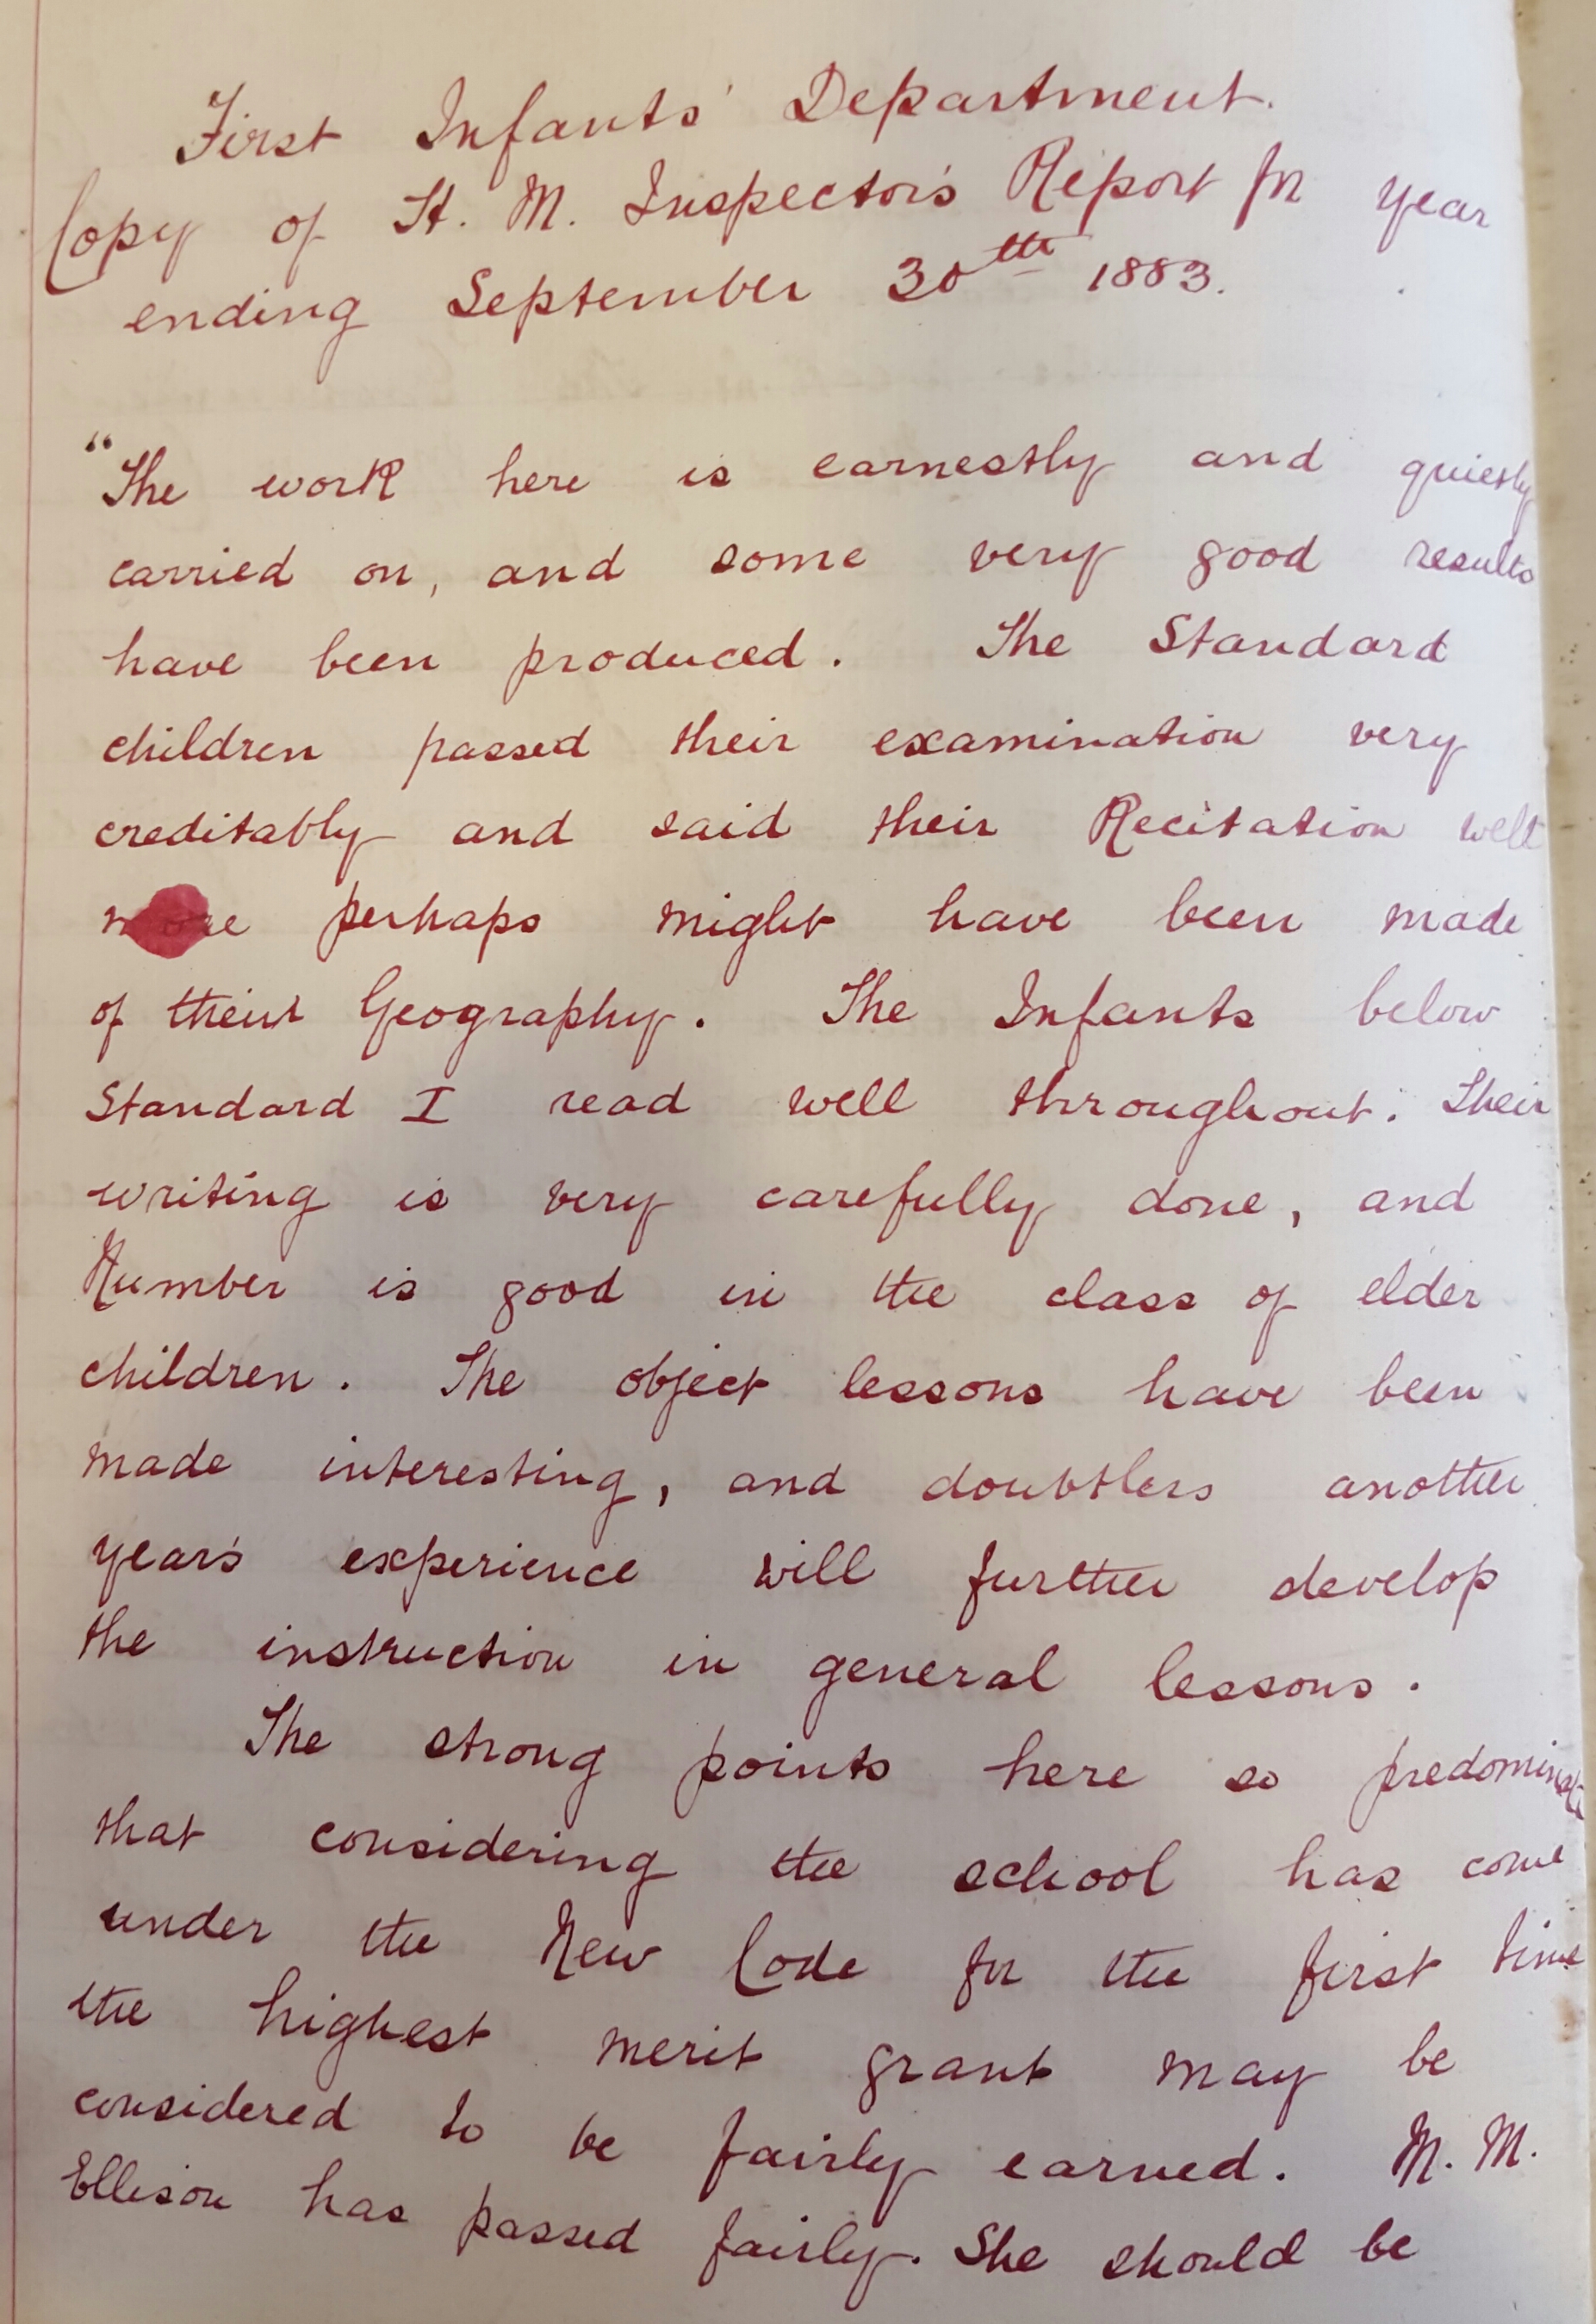 First Infants' Department.
Copy of H. M. Inspector's Report for year
ending September 30th 1883.
"The work here is earnestly and quietly
carried on, and some very good results
have been produced. The Standard
children passed their examination very
creditably and said their Recitation well
more perhaps might have been made
of their Geography. The Infants below
Standard I read well throughout. Their
writing is very carefully done, and
Number is good in the class of elder
children. The object lessons have been
made interesting, and doubtless another
year's experience will further develop
the instruction in general lessons.
The strong points here so predominate
that considering the school has come
under the New Code for the first time
the highest merit grant may be
considered to be fairly earned. M. M.
Ellison has passed fairly. She should be